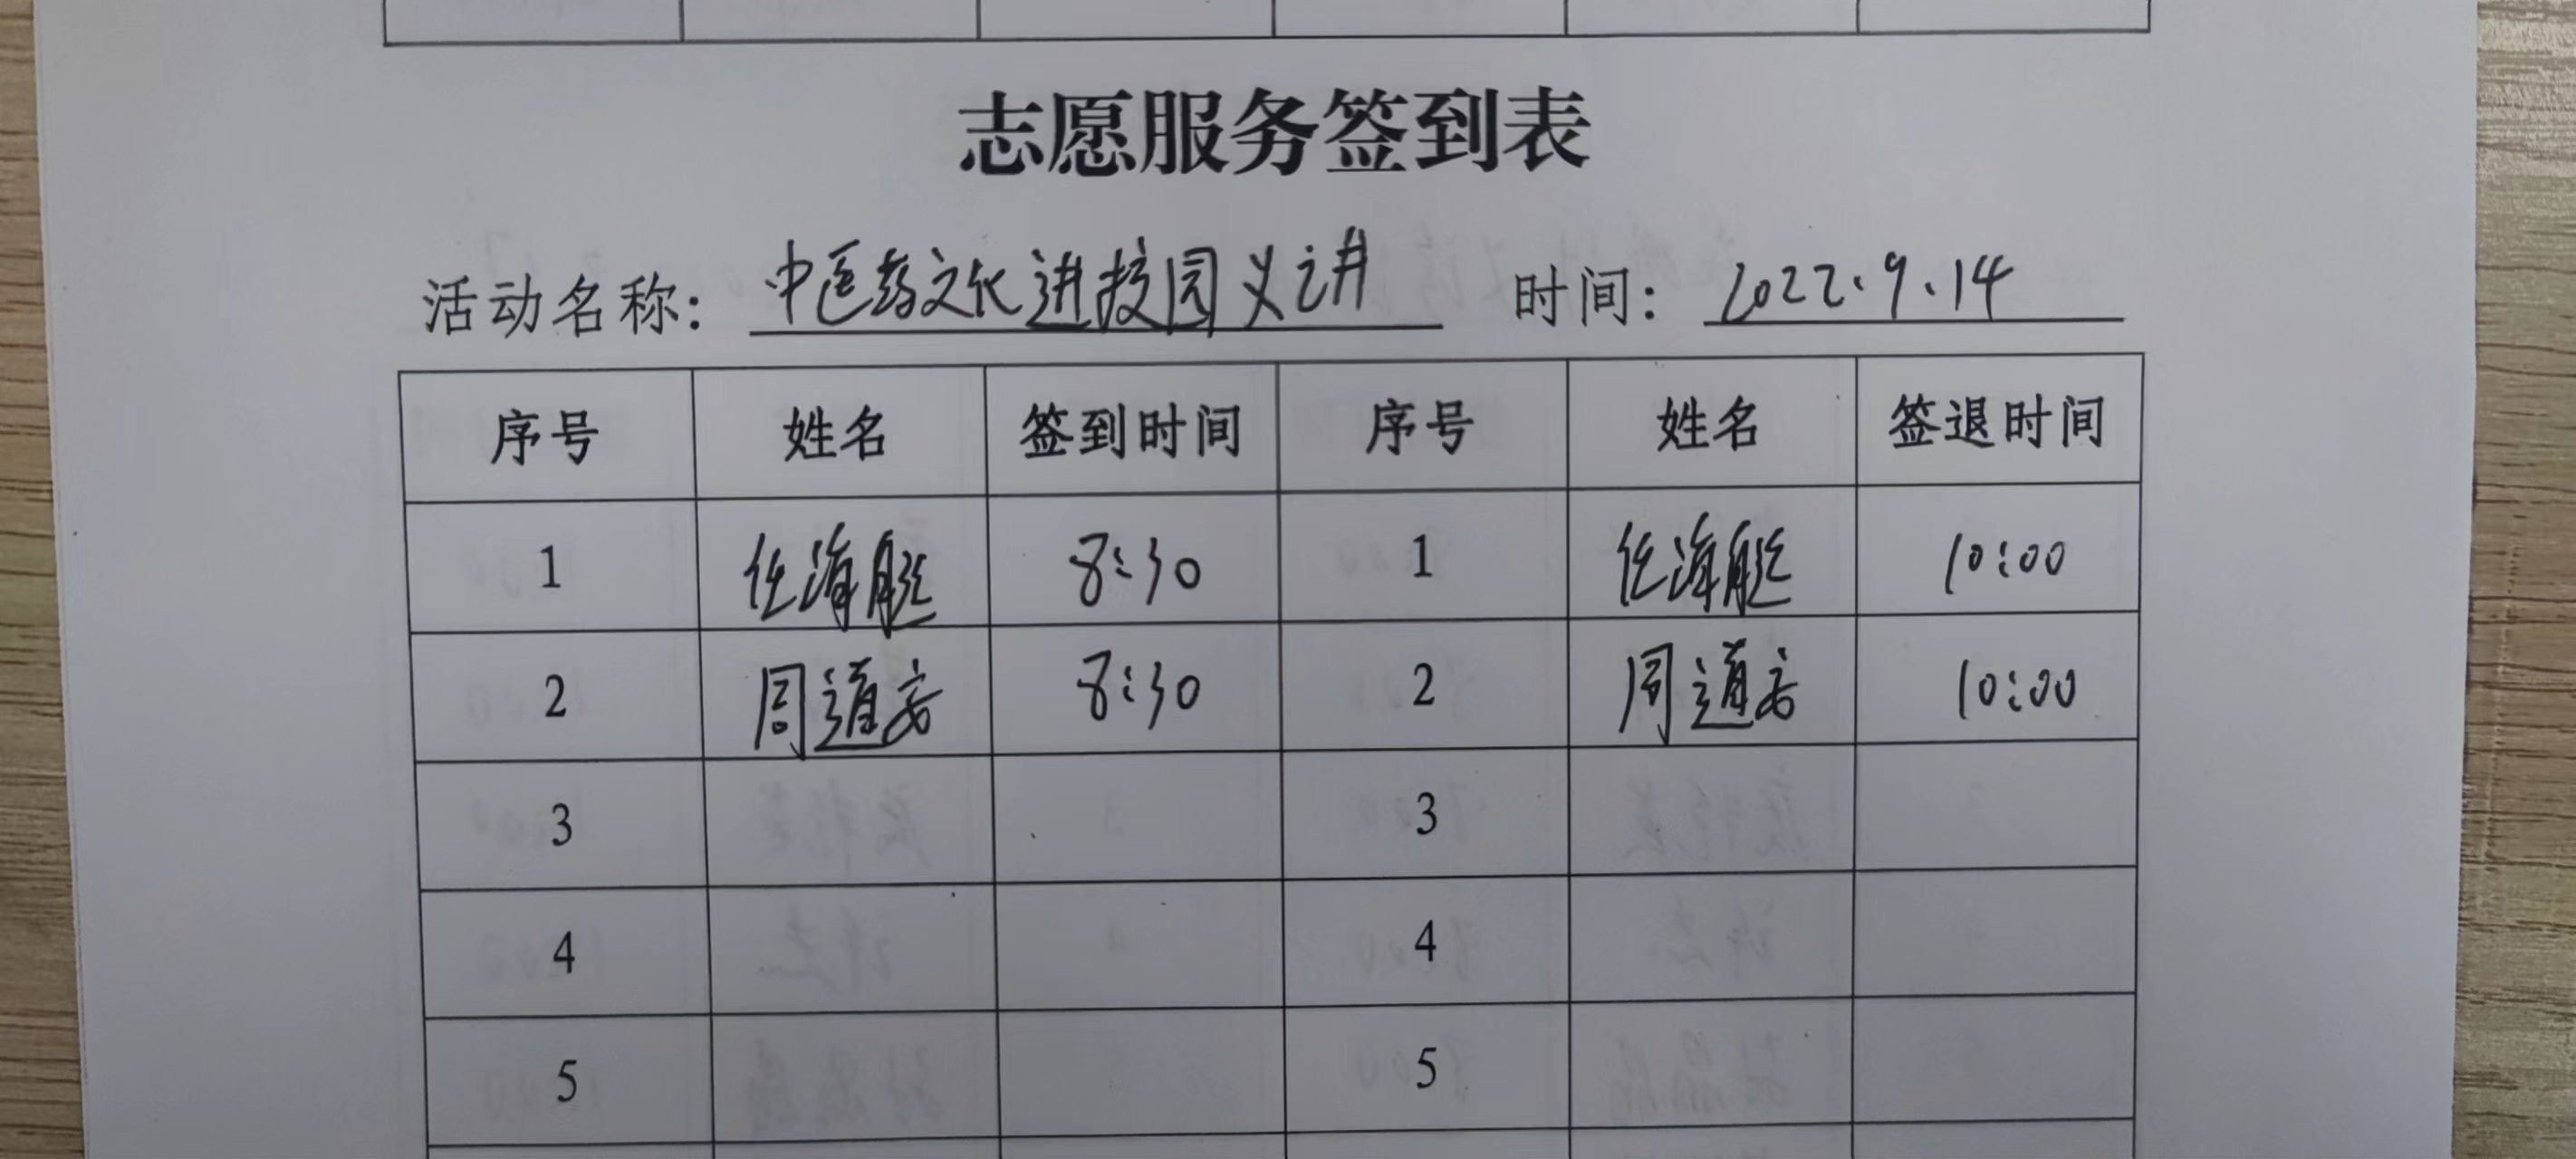 志愿服务签到表
活动名称: 中医药文化进校园义讲 时间: 2022.9.14
序号 姓名 签到时间 序号 姓名 签退时间
1 任海艇 8:30 1 任海艇 10:00
2 周道安 8:30 2 周道安 10:00
3 3
4 4
5 5